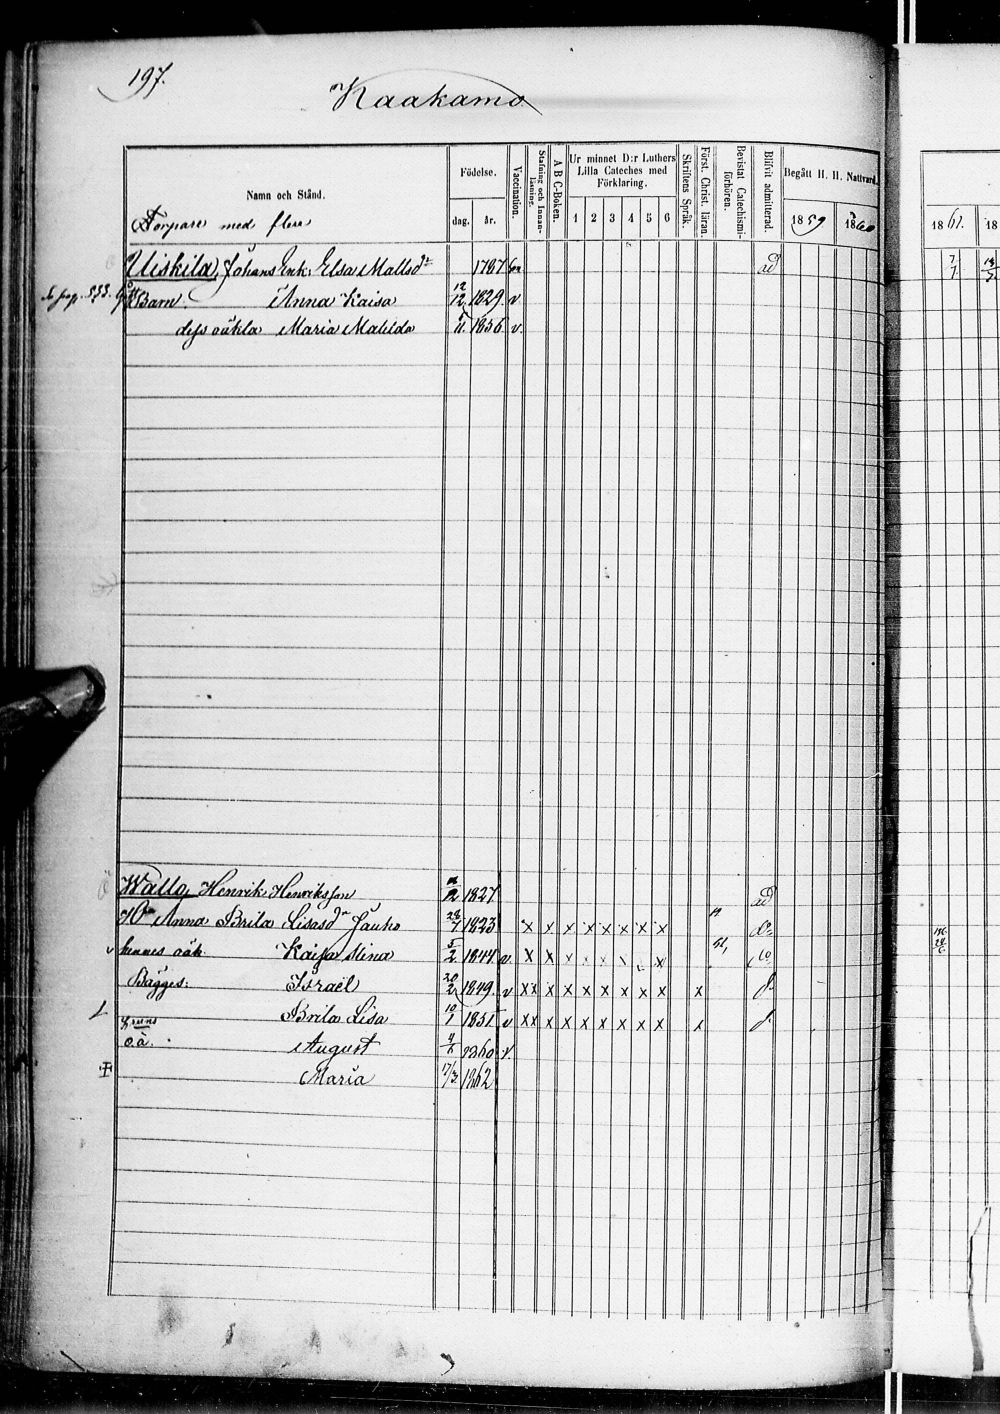 197.
Kaakamo
Namn och Stånd.
Torpare med flere
Födelse.
dag. år.
Vaccination.
Stafning och Innanläsning.
A B C-Boken.
Ur minnet D:r Luthers Lilla Cateches med Förklaring.
1 2 3 4 5 6
Skriftens Språk.
Först. Christ. läran.
Bevistat Catechismiförhören.
Blifvit admitterad.
Begått H. H. Nattvard.
1859 1860
1861. 18
Uiskila, Johans Enk. Elsa Mattsdr 1787 ad
Barn. Anna Kaisa 12/12 1829. v.
dess oäkta Maria Matilda 1856 v.
Wallo, Henrik Henriksson 1827 ad
Anna Brita Lisasdr Jauho 1823 x x x x x x x x
hennes oäk. Kaisa Mina 5/2 1844. v. x x x
Bägges: Israel 20/2 1849. v xx x x x x x x x x
Brita Lisa 10/1 1851 v xx x x x x x x x x
o.ä. August 1860 v.
Maria 17/3 1862